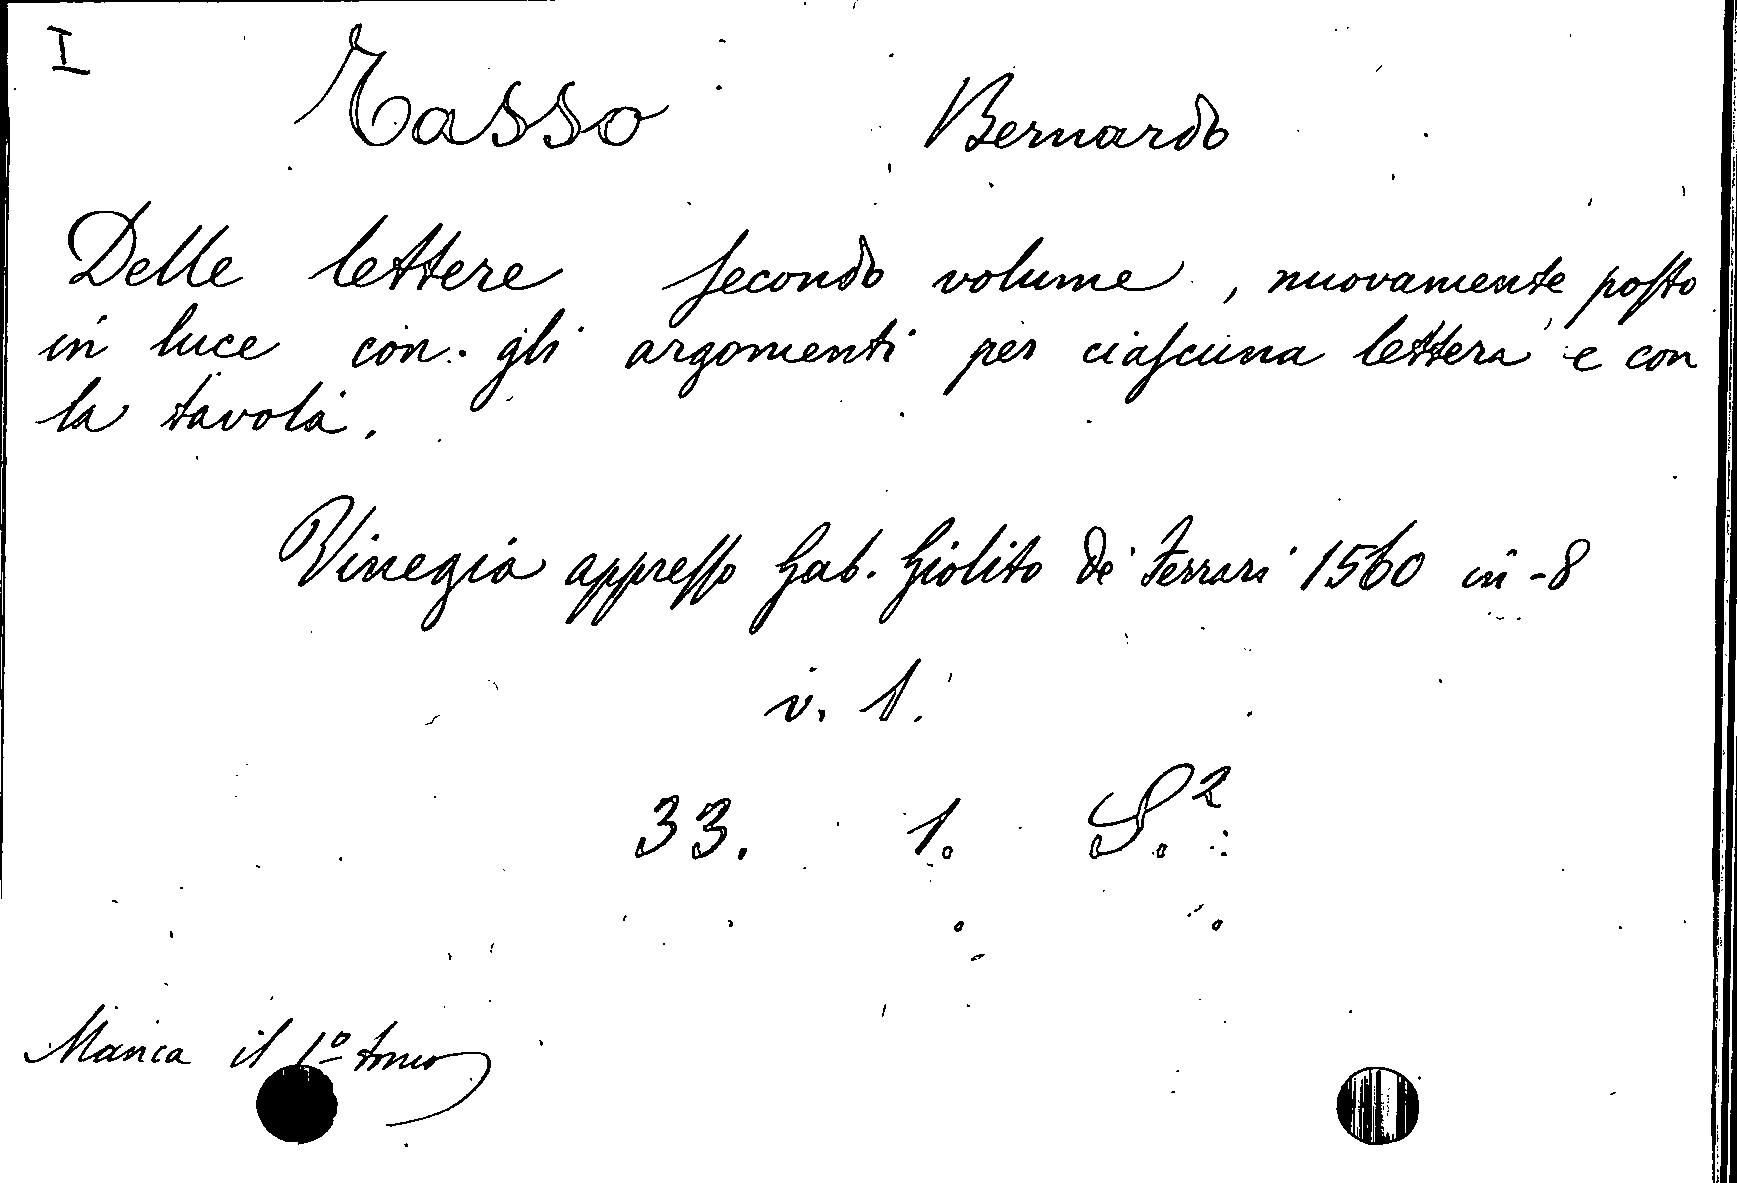 I
Tasso Bernardo
Delle lettere secondo volume, nuovamente posto
in luce con gli argomenti per ciascuna lettera e con
la tavola.
Vinegia appresso Gab. Giolito de' Ferrari 1560 in-8
v. 1.
33. 1. S.²
Manca il 1º tomo